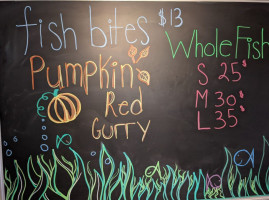 fish bites $13
Pumpkin
Red
Curry
Whole Fish
S 25$
M 30$
L 35$